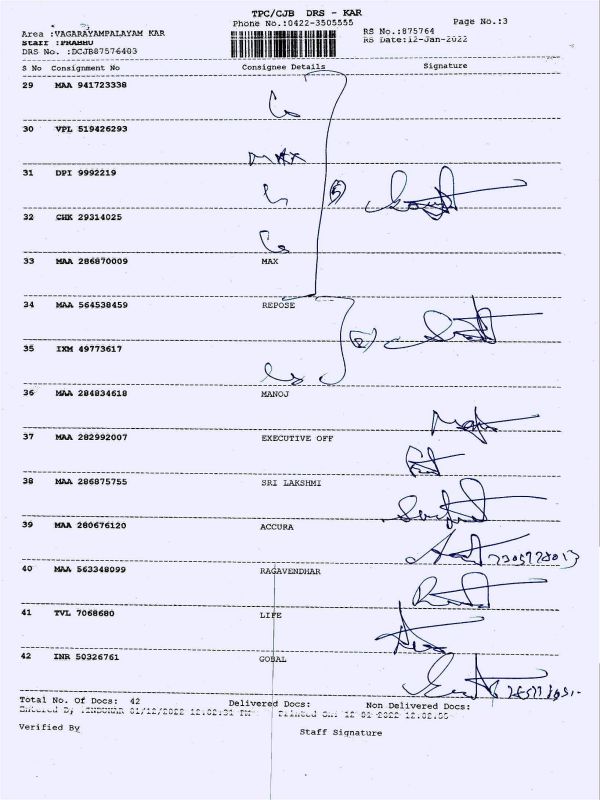 TPC/CJB DRS - KAR
Phone No.:0422-3505555 Page No.:3
Area :VAGARAYAMPALAYAM KAR RS No.:875764
Staff :PRABHU RS Date:12-Jan-2022
DRS No. :DCJB87576403
S No Consignment No Consignee Details Signature
29 MAA 941723338
30 VPL 519426293
MAX
31 DPI 9992219
5
32 CHK 29314025
33 MAA 286870009 MAX
34 MAA 564538459 REPOSE
2
35 IXM 49773617
36 MAA 284834618 MANOJ
37 MAA 282992007 EXECUTIVE OFF
38 MAA 286875755 SRI LAKSHMI
39 MAA 280676120 ACCURA
40 MAA 563348099 RAGAVENDHAR
41 TVL 7068680 LIFE
42 INR 50326761 GOBAL
Total No. Of Docs: 42 Delivered Docs: Non Delivered Docs:
Verified By Staff Signature